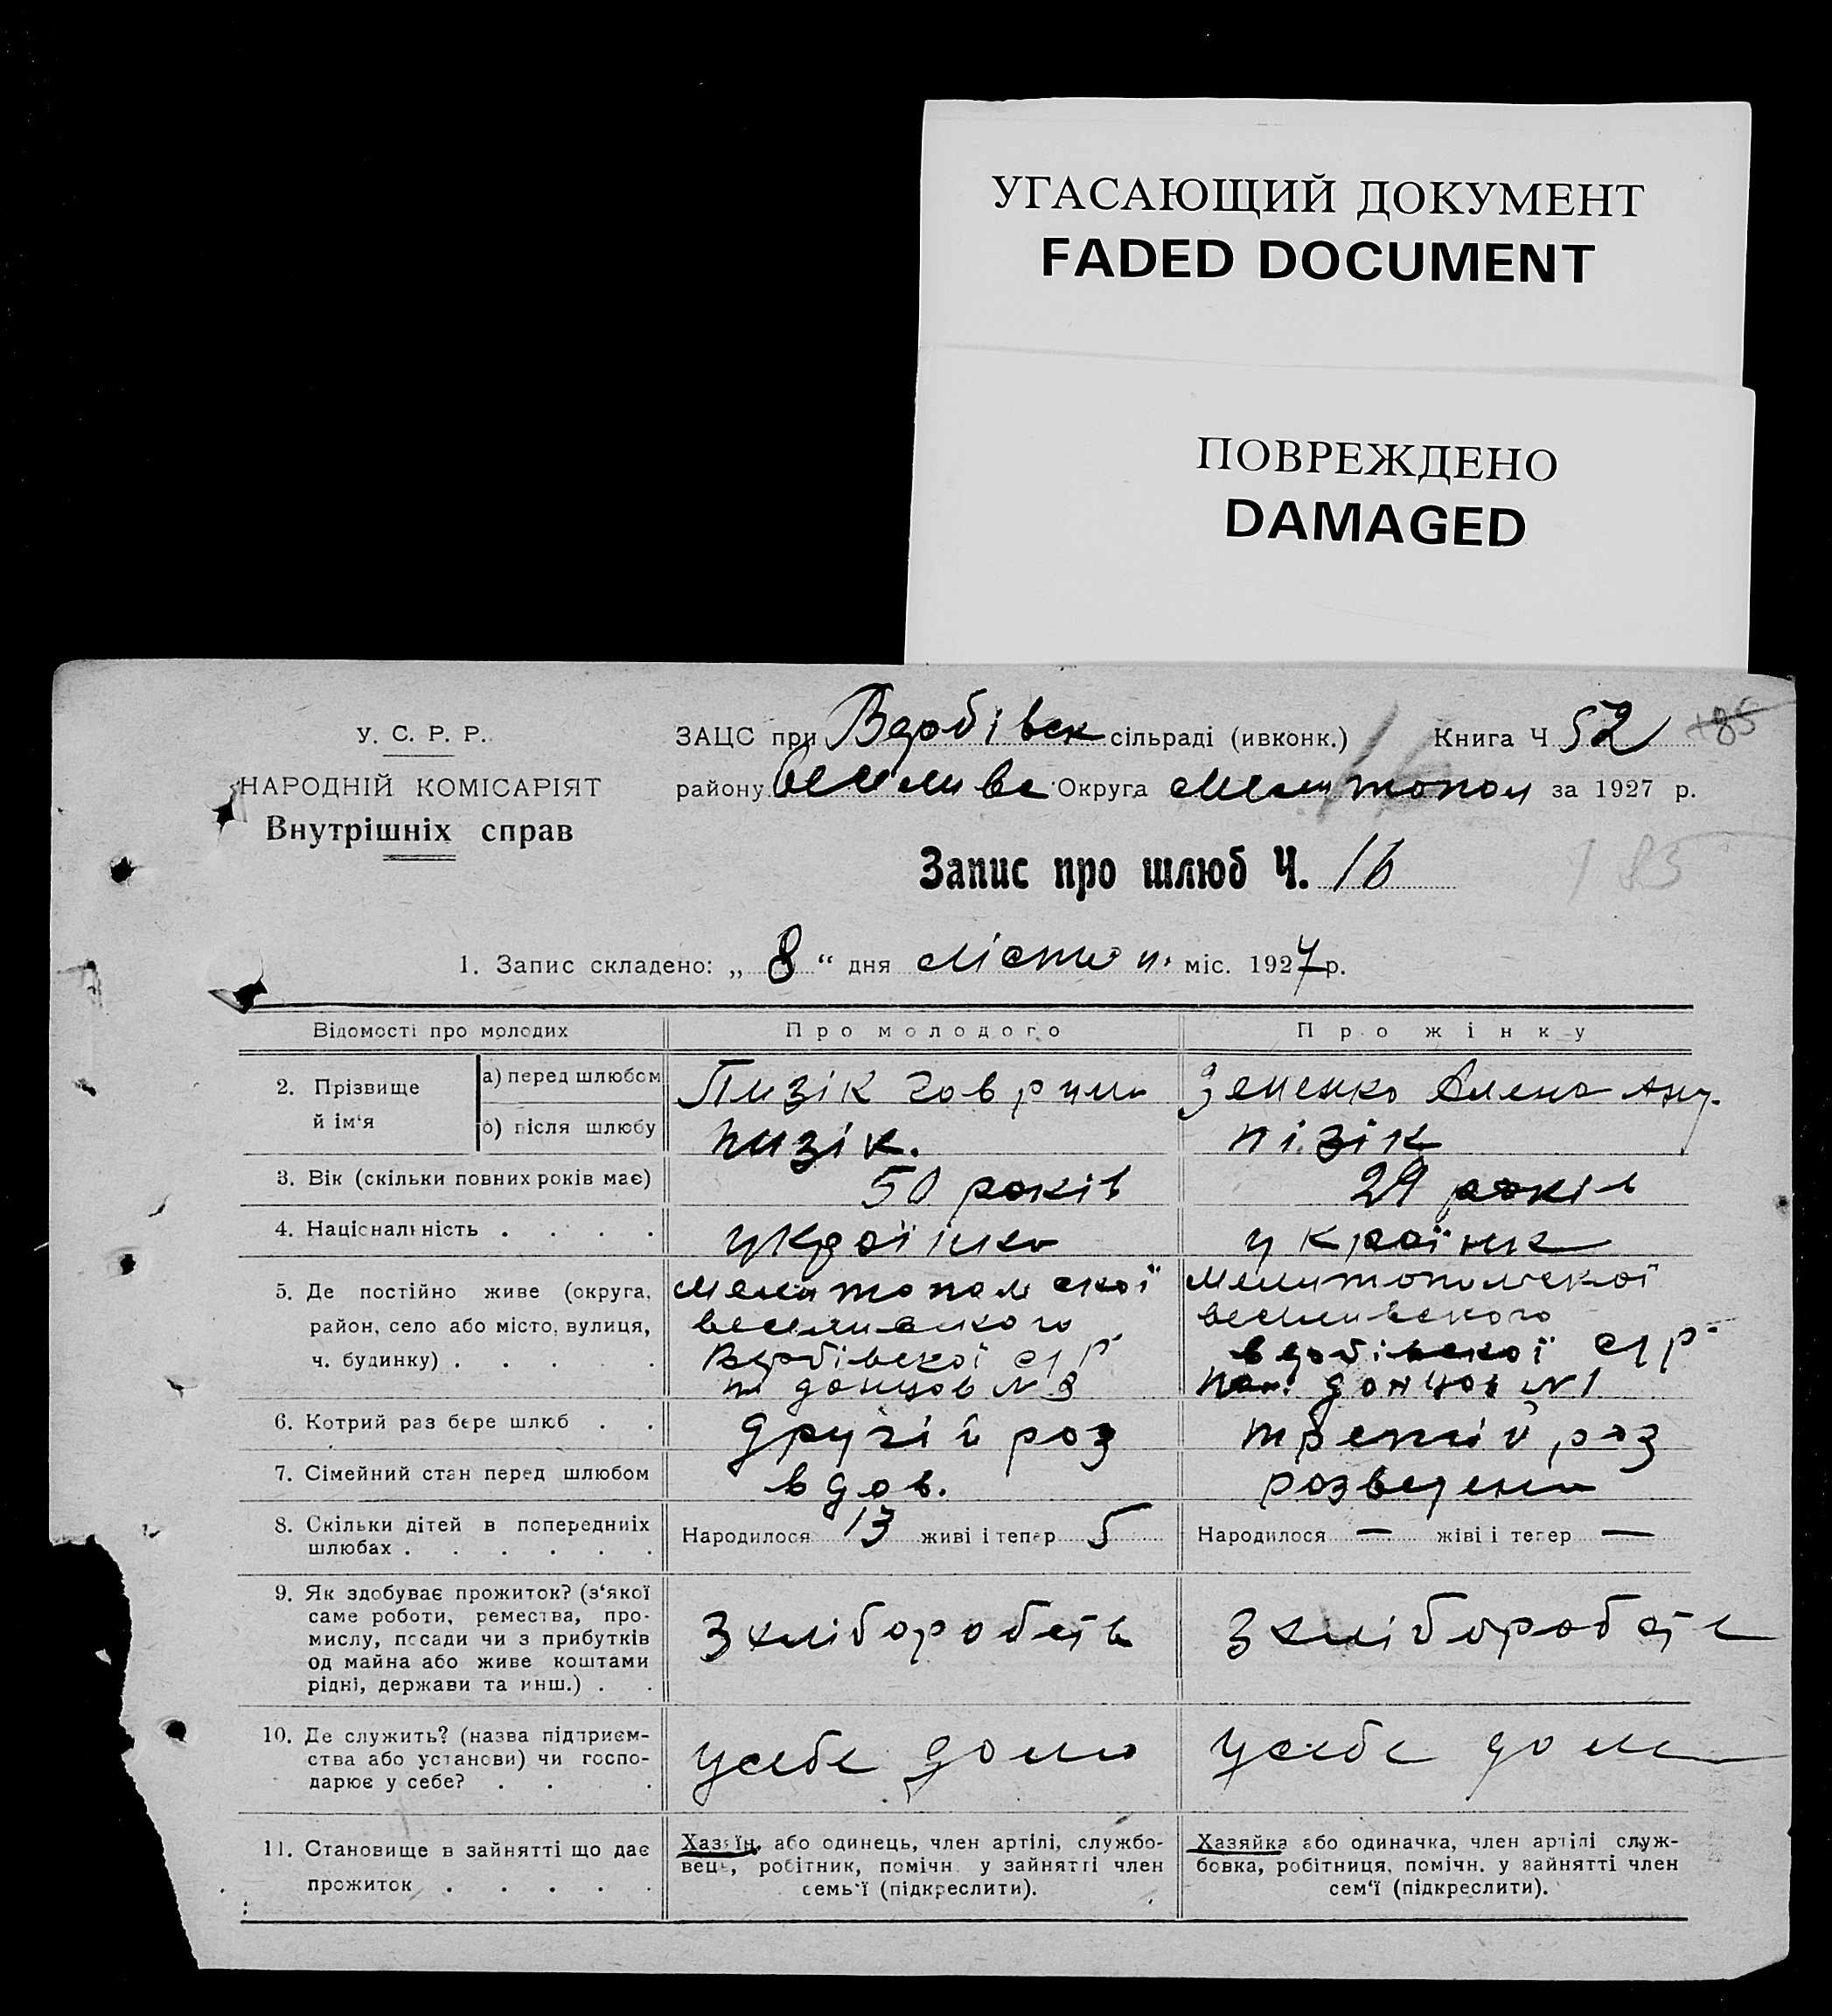 УГАСАЮЩИЙ ДОКУМЕНТ
FADED DOCUMENT
ПОВРЕЖДЕНО
DAMAGED
У. С. Р. Р.
НАРОДНІЙ КОМІСАРІЯТ
Внутрішніх справ
ЗАЦС при Вербівск сільраді (ивконк.) Книга Ч 52 185
району Округа Мелитопол за 1927 р.
Запис про шлюб Ч. 16
185
1. Запис складено: „ 8 “ дня міс. 1927 р.
Відомості про молодих
Про молодого
Про жінку
2. Прізвище й ім‘я
а) перед шлюбом
Пизік Гаврило
Зененко Алена
б) після шлюбу
Пизік.
Пізік
3. Вік (скільки повних років має)
50 років
29 років
4. Національність . . . .
5. Де постійно живе (округа,
район, село або місто, вулиця,
ч. будинку) . . . . .
Мелитопольскої
веселивского
Вербівскої с/р
донцов № 3
Мелитопольскої
веселивского
вербівскої с/р
донцов № 1
6. Котрий раз бере шлюб . .
другій раз
третий раз
7. Сімейний стан перед шлюбом
вдов.
розведена
8. Скільки дітей в попередниіх
шлюбах . . . . . .
Народилося 13 живі і тепер 5
Народилося — жіві і тепер —
9. Як здобуває прожиток? (з‘якої
саме роботи, ремества, про-
мислу, посади чи з прибутків
од майна або живе коштами
рідні, держави та инш.) . .
З хліборобств
З хліборобств
10. Де служить? (назва підприєм-
ства або установи) чи госпо-
дарює у себе? . . .
У себе дома
У себе дома
11. Становище в зайнятті що дає
прожиток . . . . .
Хазяїн, або одинець, член артілі, службо-
вець, робітник, помічн. у зайнятті член
семь‘ї (підкреслити).
Хазяйка або одиначка, член артілі служ-
бовка, робітниця, помічн. у зайнятті член
сем‘ї (підкреслити).